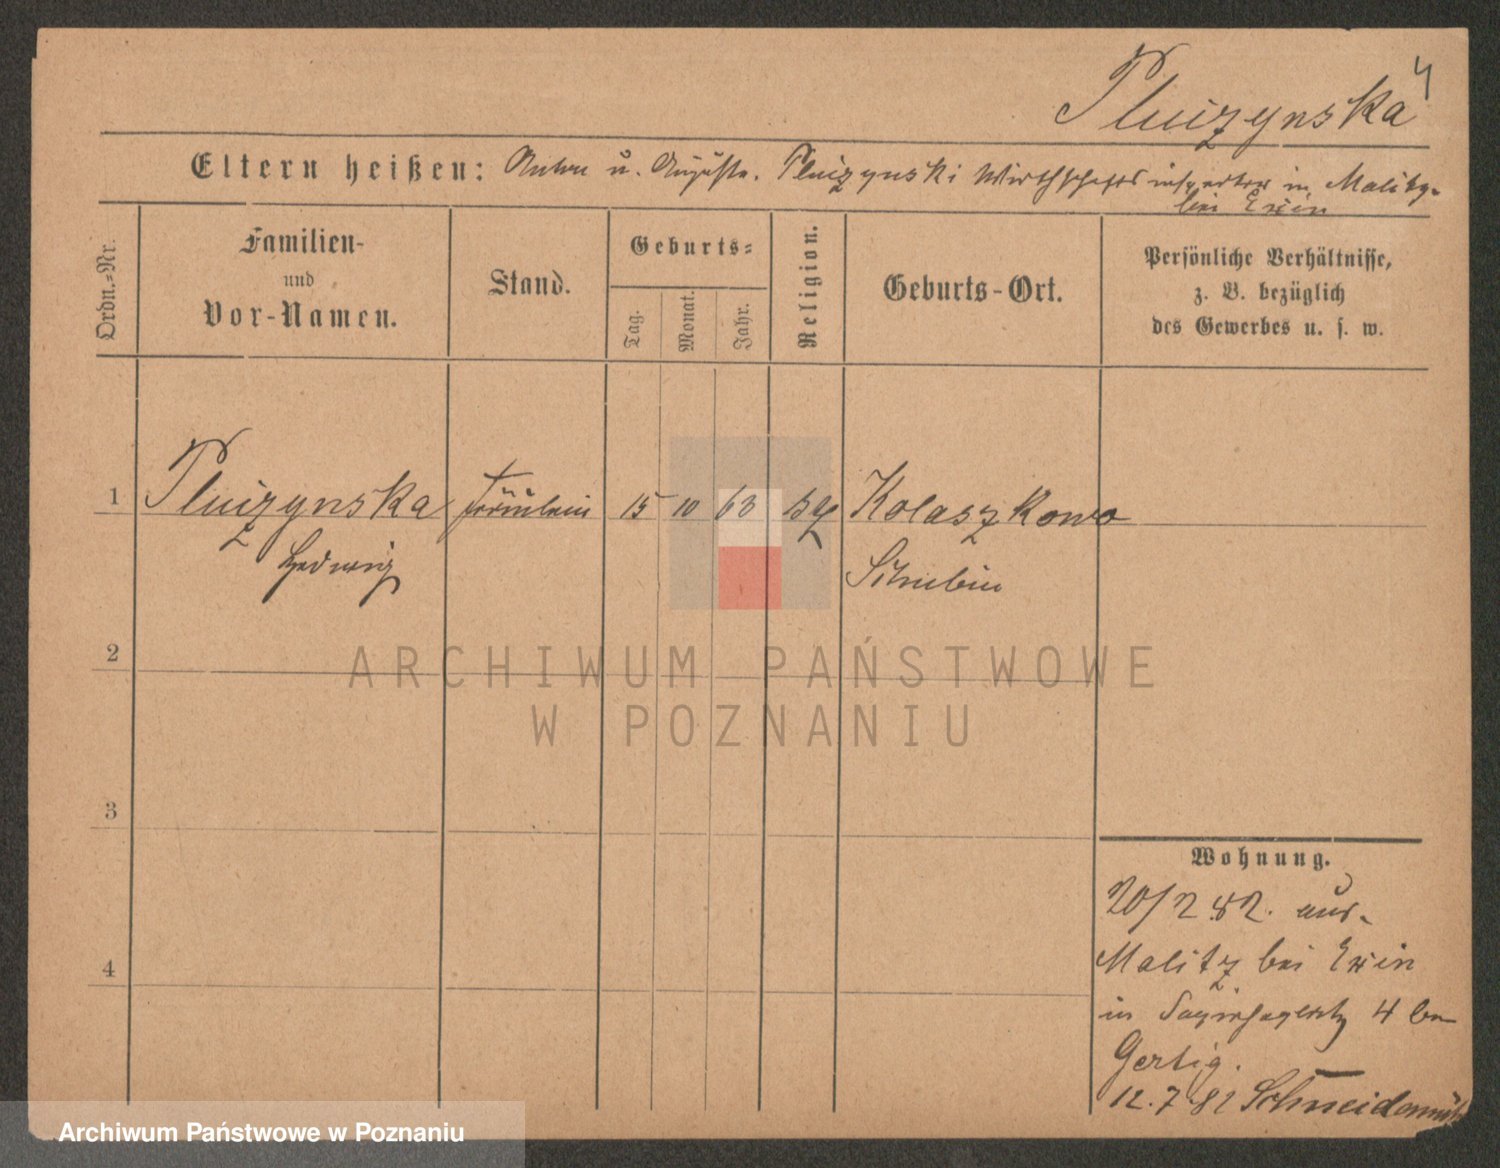 4
Pluizynska
Eltern heißen: Anton u. Auguste. Pluizynski Wirthschaftsinspector in Malitz
bei Exin
Ordn.-Nr.
Familien-
und
Vor-Namen.
Stand.
Geburts-
Tag.
Monat.
Jahr.
Religion.
Geburts-Ort.
Persönliche Verhältnisse,
z. B. bezüglich
des Gewerbes u. s. w.
1 Pluizynska Fräulein 15 10 63 Kolaszkowo
Hedwig Schubin
2
3
4
Wohnung.
20/2 82. aus
Malitz bei Exin
in 4 
Gertig.
12.7.82 Schneidemühl
ARCHIWUM PAŃSTWOWE
W POZNANIU
Archiwum Państwowe w Poznaniu